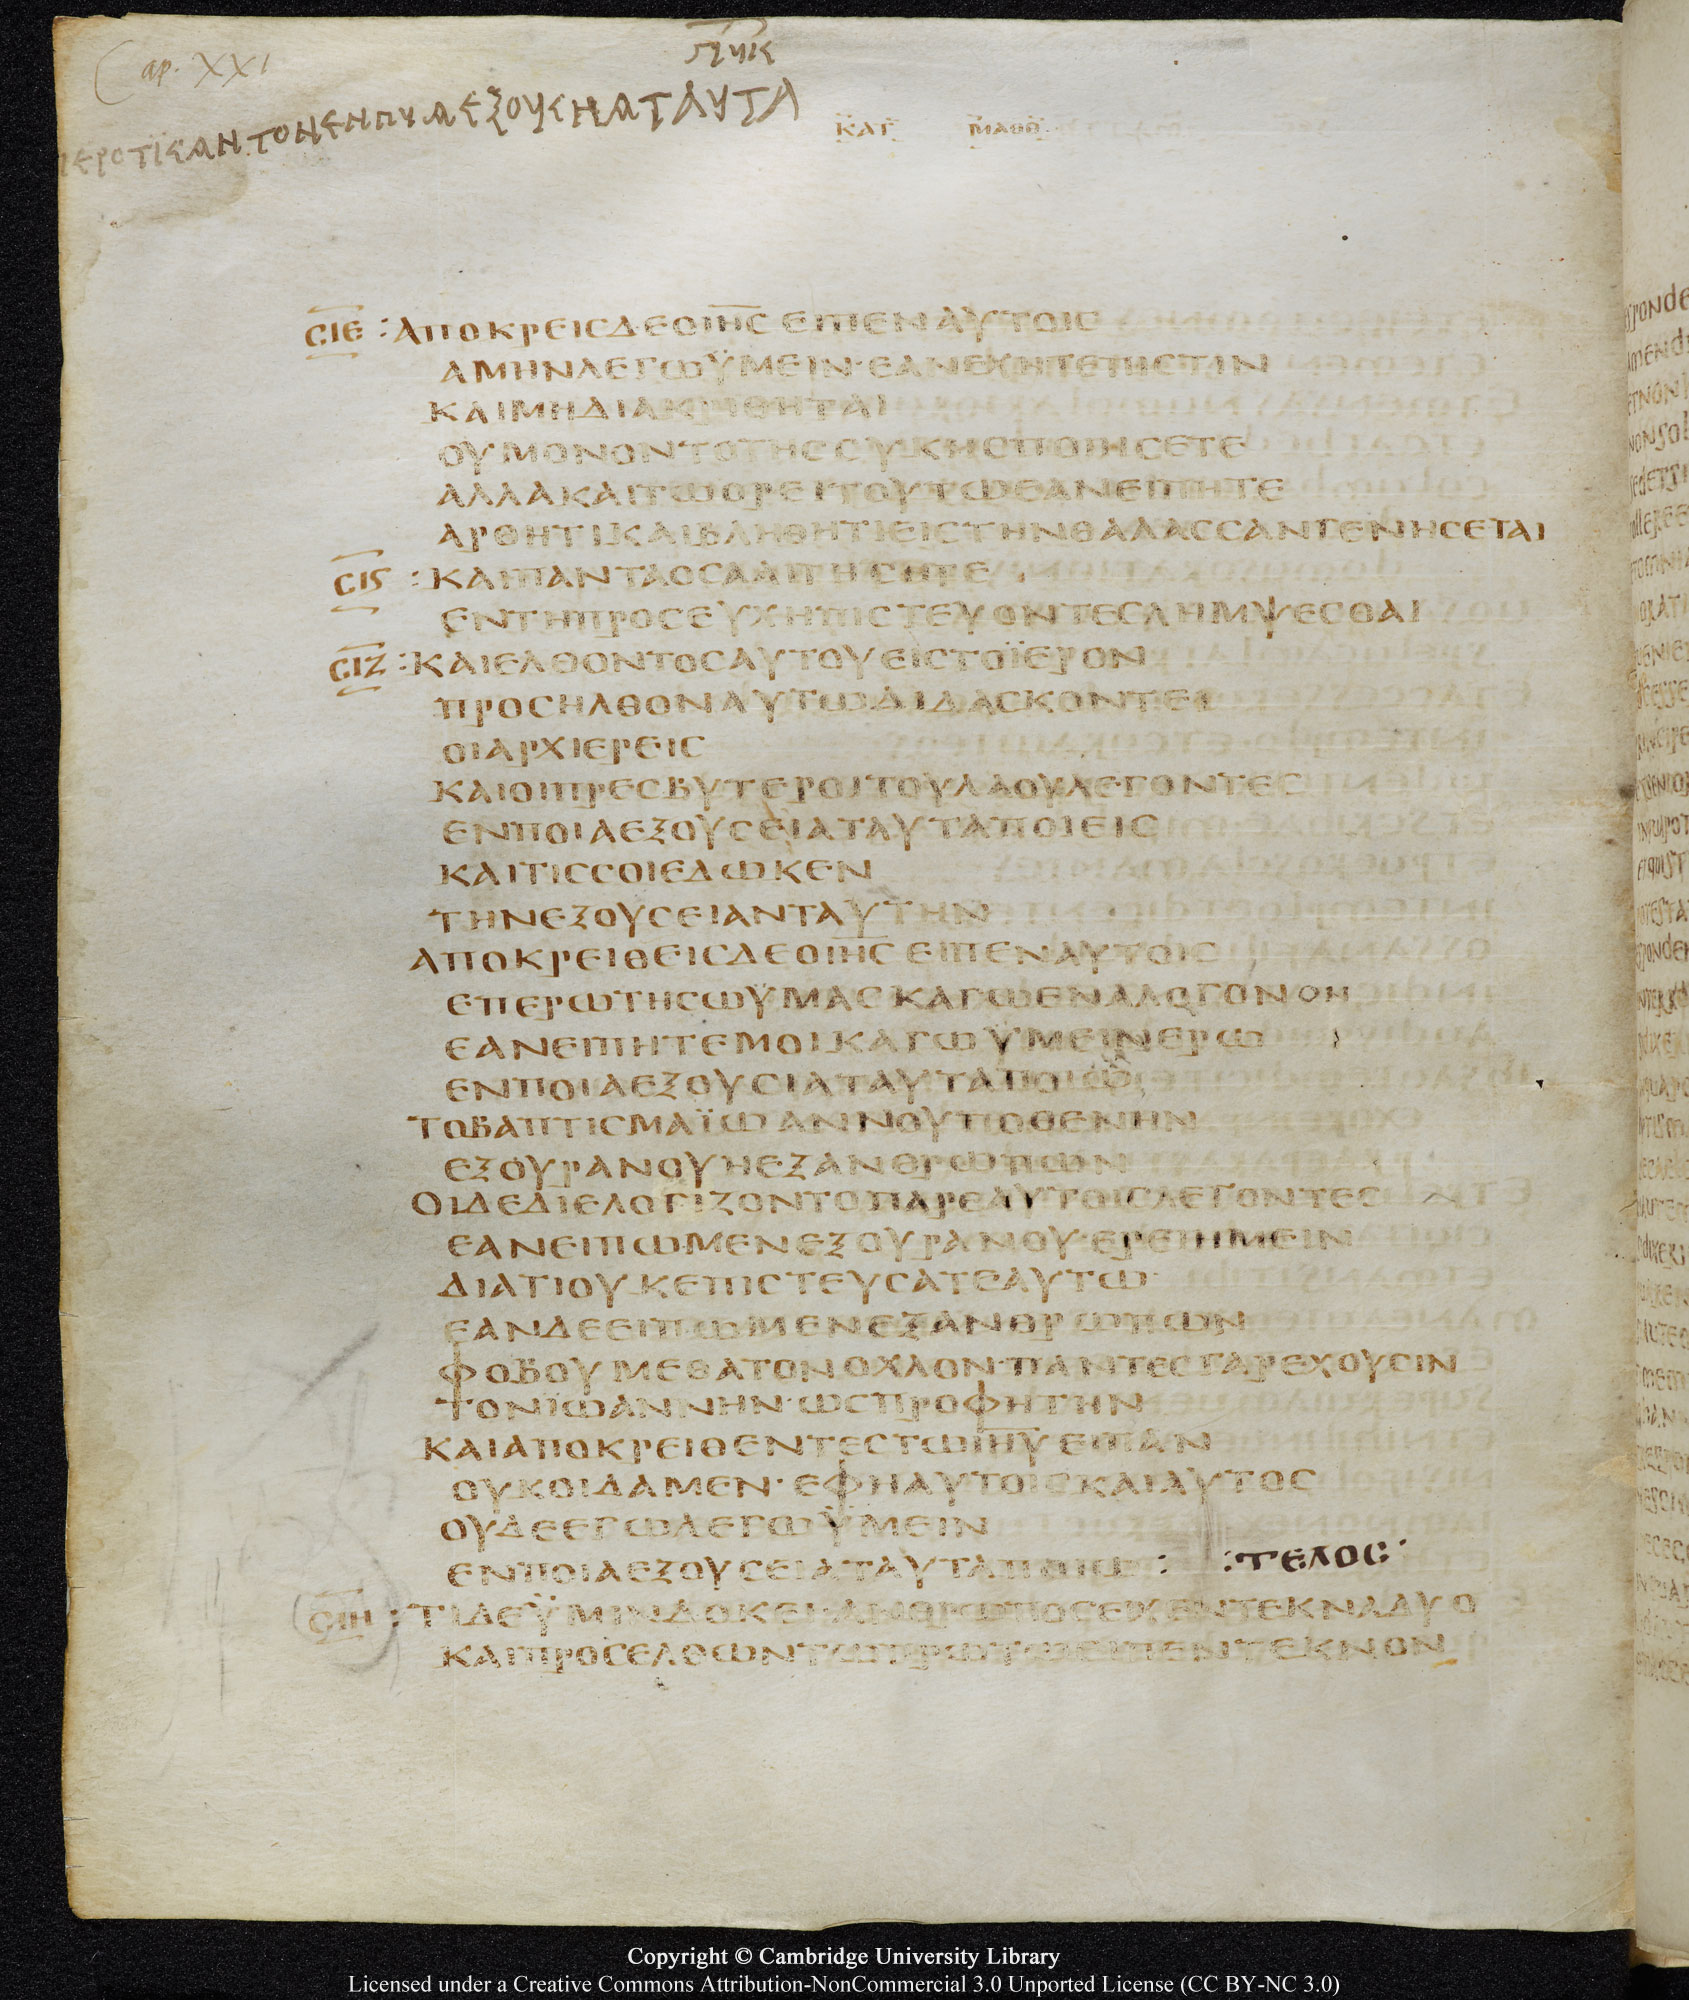 Cap. XXI
ΚΑΤ ΜΑΘΘ
ϹΙΕ : ΑΠΟΚΡΕΙϹΔΕΟΙΗϹ ΕΙΠΕΝ ΑΥΤΟΙϹ
ΑΜΗΝΛΕΓΩΫΜΕΙΝ·ΕΑΝΕΧΗΤΕΠΙϹΤΙΝ
ΚΑΙΜΗΔΙΑΚΡΙΘΗΤΑΙ
ΟΥΜΟΝΟΝΤΟΤΗϹϹΥΚΗϹΠΟΙΗϹΕΤΕ
ΑΛΛΑΚΑΙΤΩΟΡΕΙΤΟΥΤΩΕΑΝΕΙΠΗΤΕ
ΑΡΘΗΤΙΚΑΙΒΛΗΘΗΤΙΕΙϹΤΗΝΘΑΛΑϹϹΑΝΓΕΝΗϹΕΤΑΙ
ϹΙϚ : ΚΑΙΠΑΝΤΑΟϹΑΑΙΤΗϹΗΤΕ
ΕΝΤΗΠΡΟϹΕΥΧΗΠΙϹΤΕΥΟΝΤΕϹΛΗΜΨΕϹΘΑΙ
ϹΙΖ : ΚΑΙΕΛΘΟΝΤΟϹΑΥΤΟΥΕΙϹΤΟΪΕΡΟΝ
ΠΡΟϹΗΛΘΟΝΑΥΤΩΔΙΔΑϹΚΟΝΤΕϹ
ΟΙΑΡΧΙΕΡΕΙϹ
ΚΑΙΟΙΠΡΕϹΒΥΤΕΡΟΙΤΟΥΛΑΟΥΛΕΓΟΝΤΕϹ
ΕΝΠΟΙΑΕΞΟΥϹΕΙΑΤΑΥΤΑΠΟΙΕΙϹ
ΚΑΙΤΙϹϹΟΙΕΔΩΚΕΝ
ΤΗΝΕΞΟΥϹΕΙΑΝΤΑΥΤΗΝ
ΑΠΟΚΡΕΙΘΕΙϹΔΕΟΙΗϹ ΕΙΠΕΝΑΥΤΟΙϹ
ΕΠΕΡΩΤΗϹΩΫΜΑϹ ΚΑΓΩΕΝΑΛΟΓΟΝ ΟΝ
ΕΑΝΕΙΠΗΤΕΜΟΙΚΑΓΩΫΜΕΙΝΕΡΩ
ΕΝΠΟΙΑΕΞΟΥϹΙΑΤΑΥΤΑΠΟΙΩ
ΤΟΒΑΠΤΙϹΜΑΪΩΑΝΝΟΥΠΟΘΕΝΗΝ
ΕΞΟΥΡΑΝΟΥΗΕΞΑΝΘΡΩΠΩΝ
ΟΙΔΕΔΙΕΛΟΓΙΖΟΝΤΟΠΑΡΕΑΥΤΟΙϹΛΕΓΟΝΤΕϹ
ΕΑΝΕΙΠΩΜΕΝΕΞΟΥΡΑΝΟΥ·ΕΡΕΙΗΜΕΙΝ
ΔΙΑΤΙΟΥΚΕΠΙϹΤΕΥϹΑΤΕΑΥΤΩ
ΕΑΝΔΕΕΙΠΩΜΕΝΕΞΑΝΘΡΩΠΩΝ
ΦΟΒΟΥΜΕΘΑΤΟΝΟΧΛΟΝ·ΠΑΝΤΕϹΓΑΡΕΧΟΥϹΙΝ
ΤΟΝΪΩΑΝΝΗΝ·ΩϹΠΡΟΦΗΤΗΝ
ΚΑΙΑΠΟΚΡΕΙΘΕΝΤΕϹΤΩΙΗΥ ΕΙΠΑΝ
ΟΥΚΟΙΔΑΜΕΝ·ΕΦΗΑΥΤΟΙϹΚΑΙΑΥΤΟϹ
ΟΥΔΕΕΓΩΛΕΓΩΫΜΕΙΝ
ΕΝΠΟΙΑΕΞΟΥϹΕΙΑΤΑΥΤΑΠΟΙΩ : :ΤΕΛΟϹ·
ϹΙΗ : ΤΙΔΕΫΜΙΝΔΟΚΕΙΑΝΘΡΩΠΟϹΕΙΧΕΝΤΕΚΝΑΔΥΟ
ΚΑΙΠΡΟϹΕΛΘΩΝΤΩΠΡΩΤΩΕΙΠΕΝΤΕΚΝΟΝ
Copyright © Cambridge University Library
Licensed under a Creative Commons Attribution-NonCommercial 3.0 Unported License (CC BY-NC 3.0)